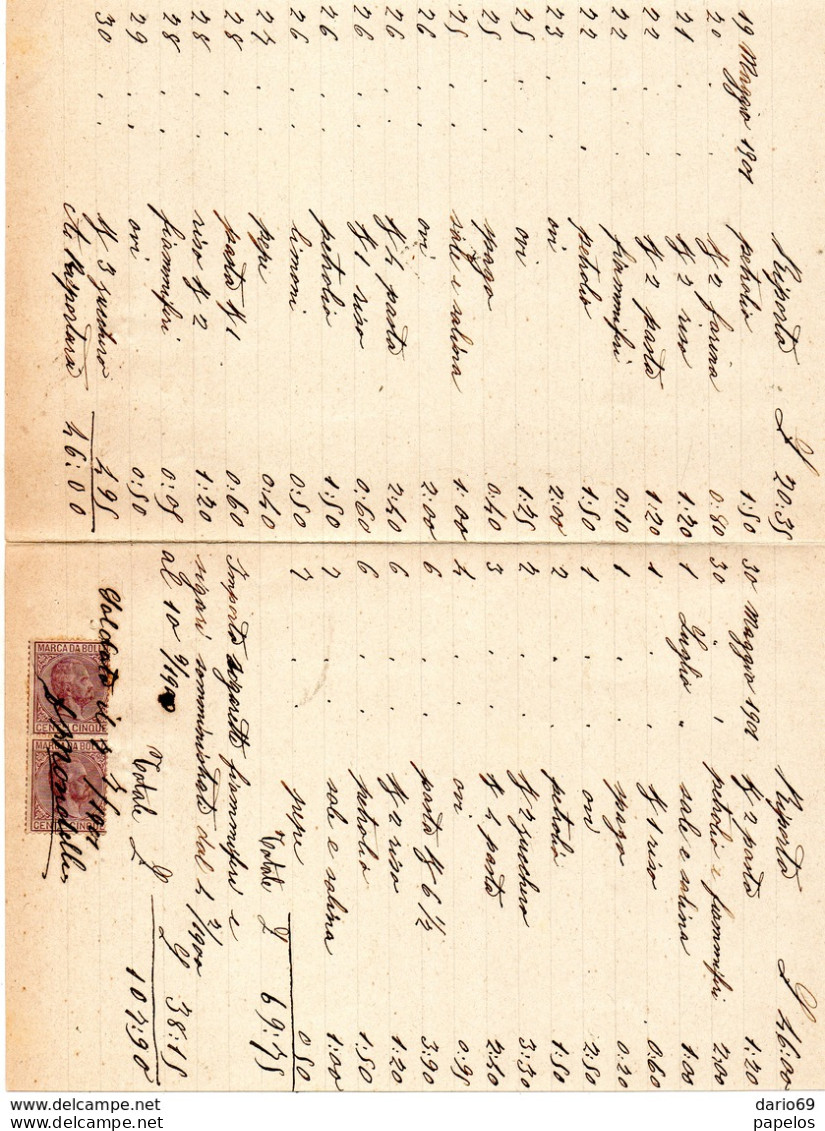 Riporto L 20:35
19 Maggio 1901 petrolio 1:50
20 . . K 2 farina 0:80
21 . . K 2 riso 1:20
22 . . K 2 pasta 1:20
22 . . fiammiferi 0:10
22 . . petrolio 1:50
23 . . ovi 2:00
25 . . ovi 1:25
25 . . spago 0:40
25 . . sale e salina 1:00
26 . . ovi 2:00
26 . . K 4 pasta 2:40
26 . . K 1 riso 0:60
26 . . petrolio 1:50
26 . . limoni 0:50
27 . . pepe 0:40
28 . . pasta K 1 0:60
28 . . riso K 2 1:20
28 . . fiammiferi 0:05
29 . . ovi 0:50
30 . . K 3 zucchero 4.95
A riportarsi 46:00
Riporto L 46:00
30 Maggio 1901 K 2 pasta 1:20
30 " , petrolio e fiammiferi 2:00
1 Luglio " sale e salina 1:00
1 . . K 1 riso 0:60
1 . . spago 0:20
1 . . ovi 2:50
2 . . petrolio 1:50
2 . . K 2 zucchero 3:30
3 . . K 4 pasta 2:40
4 . . ovi 0:95
6 . . pasta K 6 ½ 3:90
6 . . K 2 riso 1:20
6 . . petrolio 1:50
7 . . sale e salina 1:00
7 . . pepe 0:50
Totale L 69:75
Importo sigarette fiammiferi e
sigari somministrati dal 4 2/1900
al 10 9/190 L 38:15
Totale L 107:90
MARCA DA BOLLO
CENT. CINQUE
MARCA DA BOLLO
CENT. CINQUE
Soldato il
dario69
papelos